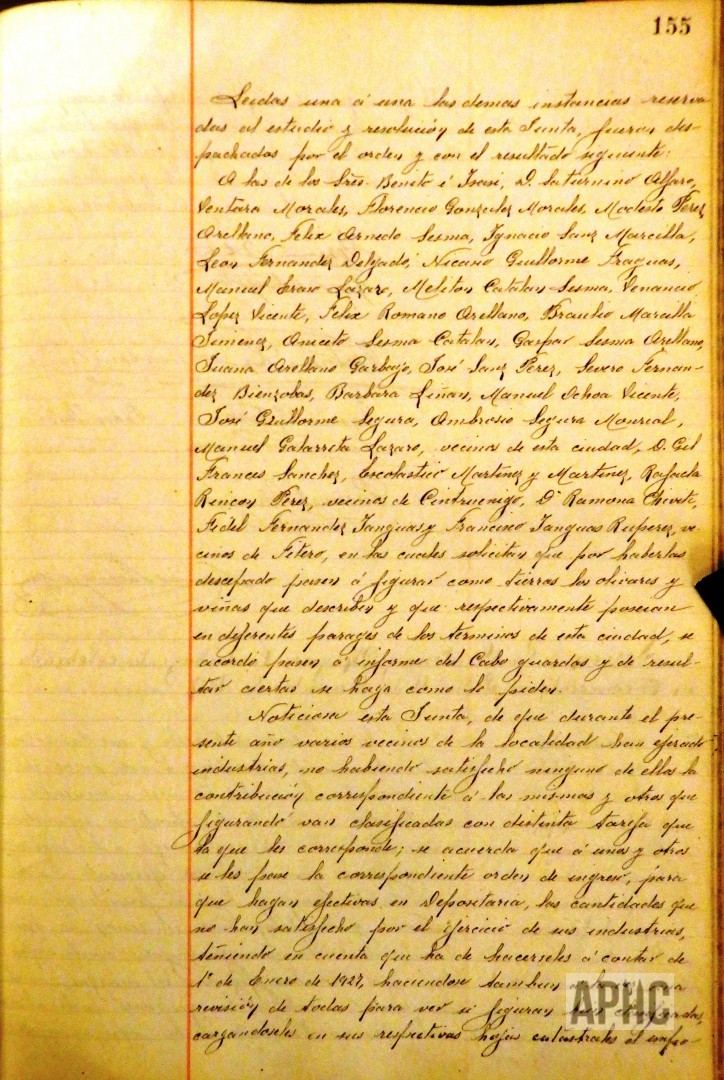 155
Leidas una á una las demas instancias reserva
das al estudio y resolución de esta Junta, fueron des-
pachadas por el orden y con el resultado siguiente:
A las de los Sres. Benito é D. Saturnino Alfaro,
Ventura Morales, Florencio Gonzalez Morales, Modesto Perez
Arellano, Felix Arnedo Sesma, Ignacio Sanz Marcilla,
Leon Fernandez Delgado, Nicasio Guillorme Fraguas,
Manuel Eraso Lazaro, Meliton Catalan Sesma, Venancio
Lopez Vicente, Felix Romano Arellano, Braulio Marcilla
Jimenez, Aniceto Sesma Catalan, Gaspar Sesma Arellano,
Juana Arellano Garbayo, José Sanz Perez, Severo Fernan-
dez Bienzobas, Barbara Liñan, Manuel Ochoa Vicente,
José Guillorme Segura, Ambrosio Segura Monreal,
Manuel Galarreta Lazaro, vecinos de esta ciudad, D. Gil
Frances Sanchez, Escolastico Martinez y Martinez, Rafaela
Rincon Perez, vecinos de Cintruenigo, Dª Ramona Chivite,
Fidel Fernandez Yanguas y Francisco Yanguas Ruperez, ve
cinos de Fitero, en las cuales solicitan que por haberlas
descepado pasen á figurar como tierras los olivares y
viñas que describen y que respectivamente poseian
en diferentes parages de los terminos de esta ciudad, se
acordo pasen á informe del Cabo guardas y de resul-
tar ciertas se haga como lo piden.
Noticiosa esta Junta, de que durante el pre-
sente año varios vecinos de la localidad han ejercido
industrias, no habiendo satisfecho ninguno de ellos la
contribución correspondiente á las mismas y otros que
figurando van clasificadas con distinta tarifa que
la que les corresponde; se acuerda que á unos y otros
se les pase la correspondiente orden de ingreso, para
que hagan efectivas en Depositaria, las cantidades que
no han satisfecho por el ejercicio de sus industrias,
teniendo en cuenta que ha de hacerseles á contar de
1º de Enero de 1927, haciendose tambien
revisión de todas para ver si figuran bien
cargandoseles en sus respectivas hojas catastrales el impo-
APHC